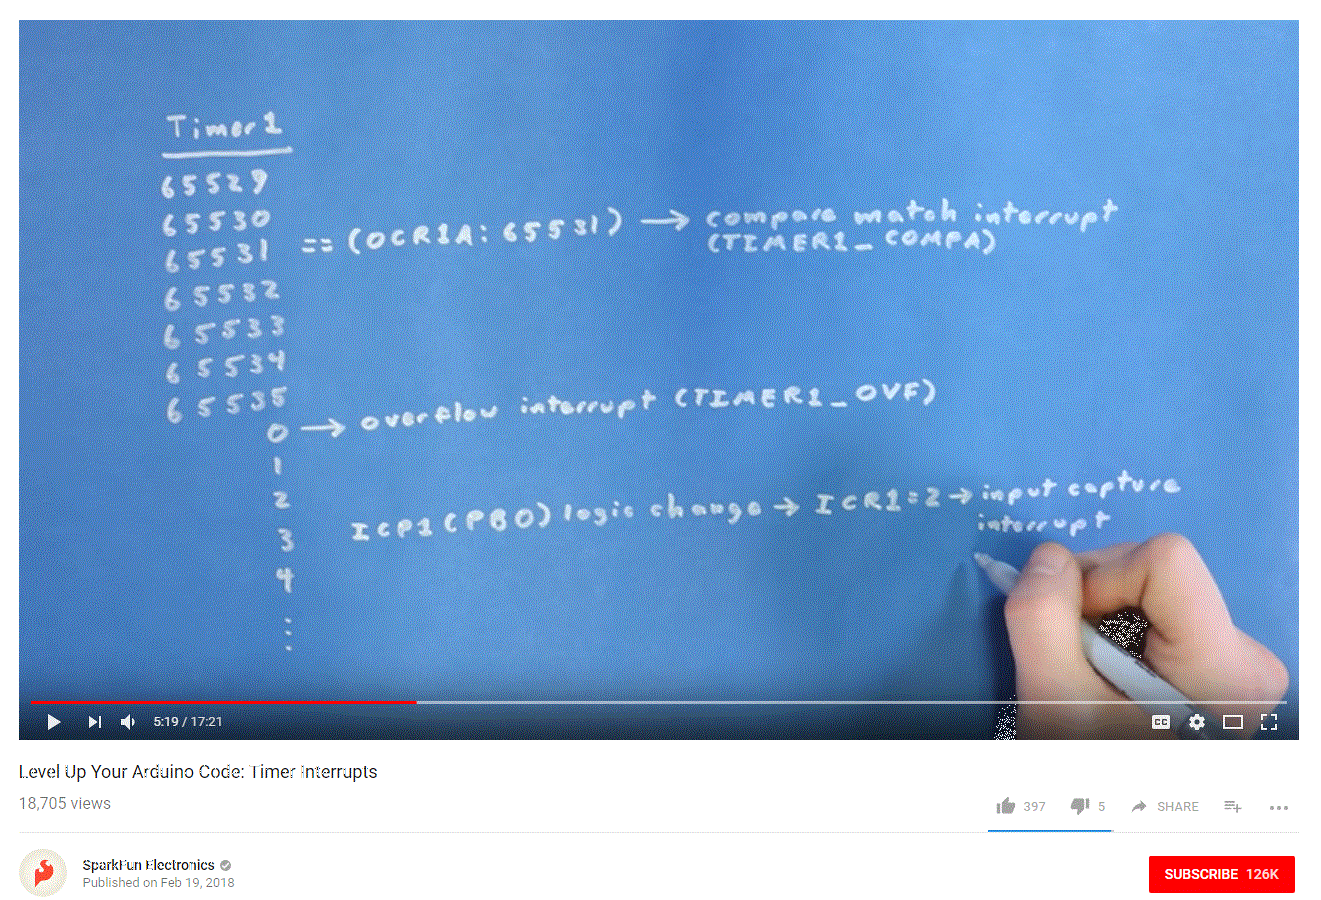 Timer1
65529
65530
65531 == (OCR1A: 65531) → compare match interrupt
(TIMER1_COMPA)
65532
65533
65534
65535
0 → overflow interrupt (TIMER1_OVF)
1
2 ICP1 (PB0) logic change → ICR1=2 → input capture
interrupt
3
4
⋮
5:19 / 17:21
CC
Level Up Your Arduino Code: Timer Interrupts
18,705 views
397
5
SHARE
SparkFun Electronics
Published on Feb 19, 2018
SUBSCRIBE 126K